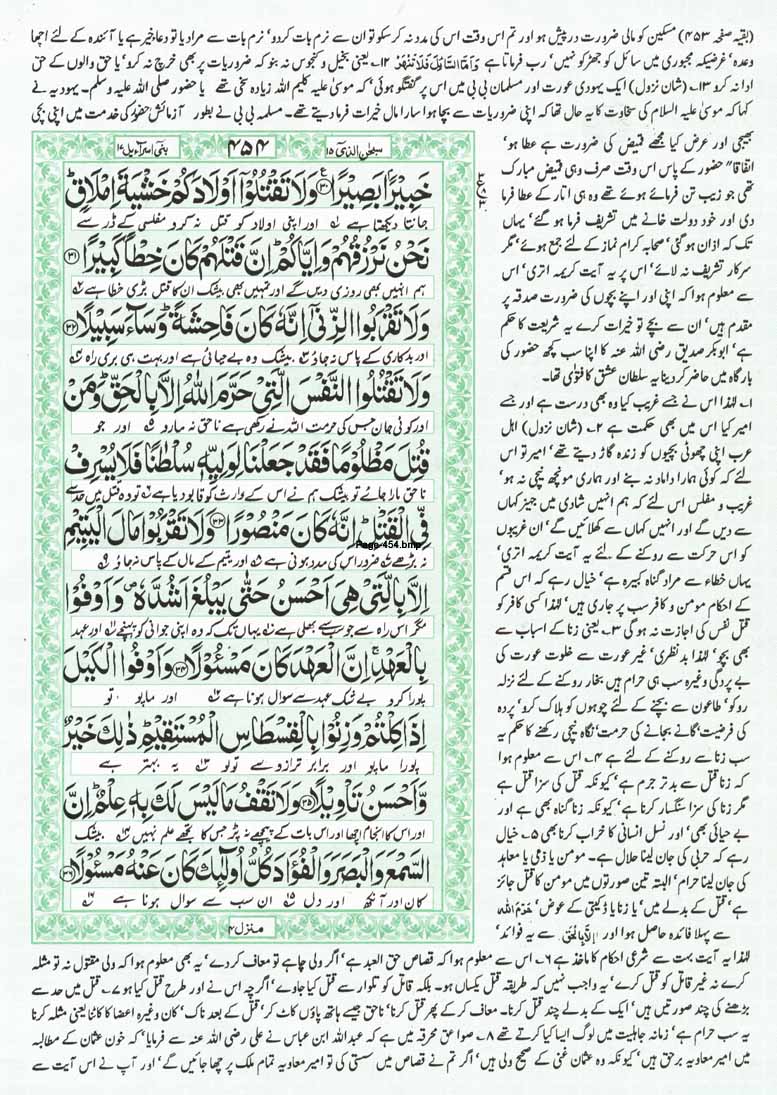 (بقیہ صفحہ ۴۵۳) مسکین کو مالی ضرورت درپیش ہو اور تم اس وقت اس کی مدد نہ کر سکو تو ان سے نرم بات کردو' نرم بات سے مراد یا تو دعا خیر ہے یا آئندہ کے لئے اچھا
وعدہ' غرضیکہ مجبوری میں سائل کو جھڑکو نہیں' رب فرماتا ہے وَاَمَّا السَّآئِلَ فَلَا تَنْهَرْ ۱۲۔ یعنی بخیل و کنجوس نہ بنو کہ ضروریات پر بھی خرچ نہ کرو' یا حق والوں کے حق
ادا نہ کرو ۱۳۔ (شان نزول) ایک یہودی عورت اور مسلمان بی بی میں اس پر گفتگو ہوئی' کہ موسیٰ علیہ کلیم اللہ زیادہ سخی تھے یا حضور صلی اللہ علیہ وسلم۔ یہودیہ نے
کہا کہ موسیٰ علیہ السلام کی سخاوت کا یہ حال تھا کہ اپنی ضروریات سے بچا ہوا سارا مال خیرات فرما دیتے تھے۔ مسلمہ بی بی نے بطور آزمائش حضور کی خدمت میں اپنی بچی
بھیجی اور عرض کیا مجھے قمیض کی ضرورت ہے عطا ہو'
اتفاقاً حضور کے پاس اس وقت صرف وہی قمیض مبارک
تھی جو زیب تن فرمائے ہوئے تھے وہ ہی اتار کے عطا فرما
دی اور خود دولت خانے میں تشریف فرما ہو گئے' یہاں
تک کہ اذان ہو گئی' صحابہ کرام نماز کے لئے جمع ہوئے' مگر
سرکار تشریف نہ لائے' اس پر یہ آیت کریمہ اتری' اس
سے معلوم ہوا کہ اپنی اور اپنے بچوں کی ضرورت صدقہ پر
مقدم ہیں' ان سے بچے تو خیرات کرے یہ شریعت کا حکم
ہے' ابوبکر صدیق رضی اللہ عنہ کا اپنا سب کچھ حضور کی
بارگاہ میں حاضر کر دینا یہ سلطان عشق کا فتوٰی تھا۔
۱۔ لہٰذا اس نے جسے غریب کیا وہ بھی درست ہے اور جسے
امیر کیا اس میں بھی حکمت ہے ۲۔ (شان نزول) اہل
عرب اپنی چھوٹی بچیوں کو زندہ گاڑ دیتے تھے' امیر تو اس
لئے کہ کوئی ہمارا داماد نہ بنے اور ہماری مونچھ نیچی نہ ہو'
غریب و مفلس اس لئے کہ ہم انہیں شادی میں جہیز کہاں
سے دیں گے اور انہیں کہاں سے کھلائیں گے' ان غریبوں
کو اس حرکت سے روکنے کے لئے یہ آیت کریمہ اتری'
یہاں خطاء سے مراد گناہ کبیرہ ہے' خیال رہے کہ اس قسم
کے احکام مومن و کافر سب پر جاری ہیں' لہٰذا کسی کافر کو
قتل نفس کی اجازت نہ ہو گی ۳۔ یعنی زنا کے اسباب سے
بھی بچو' لہٰذا بد نظری' غیر عورت سے خلوت عورت کی
بے پردگی وغیرہ سب ہی حرام ہیں بخار روکنے کے لئے نزلہ
روکو' طاعون سے بچنے کے لئے چوہوں کو ہلاک کرو' پردہ
کی فرضیت' گانے بجانے کی حرمت' نگاہ نیچی رکھنے کا حکم یہ
سب زنا سے روکنے کے لئے ہے ۴۔ اس سے معلوم ہوا
کہ زنا قتل سے بدتر جرم ہے' کیونکہ قتل کی سزا قتل ہے
مگر زنا کی سزا سنگسار کرنا ہے' کیونکہ زنا گناہ بھی ہے اور
بے حیائی بھی' اور نسل انسانی کا خراب کرنا بھی ۵۔ خیال
رہے کہ حربی کی جان لینا حلال ہے۔ مومن یا ذمی یا معاہد
کی جان لینا حرام' البتہ تین صورتوں میں مومن کا قتل جائز
ہے' قتل کے بدلے میں' یا زنا یا ڈکیتی کے عوض' حَرَّمَ اللّٰهُ
سے پہلا فائدہ حاصل ہوا اور اِلَّا بِالْحَقِّ سے یہ فوائد'
سبحٰن الذی ۱۵
۴۵۴
بنی اسرآءیل ۱۷
خَبِيْرًۢا بَصِيْرًا ﴿۳۰﴾ وَلَا تَقْتُلُوْٓا اَوْلَادَكُمْ خَشْيَةَ اِمْلَاقٍ
جانتا دیکھتا ہے ۱ اور اپنی اولاد کو قتل نہ کرو مفلسی کے ڈر سے
نَحْنُ نَرْزُقُهُمْ وَاِيَّاكُمْ اِنَّ قَتْلَهُمْ كَانَ خِطْاً كَبِيْرًا ﴿۳۱﴾
ہم انہیں بھی روزی دیں گے اور تمہیں بھی بیشک ان کا قتل بڑی خطا ہے ۲
وَلَا تَقْرَبُوا الزِّنٰٓى اِنَّهٗ كَانَ فَاحِشَةً وَسَآءَ سَبِيْلًا ﴿۳۲﴾
اور بدکاری کے پاس نہ جاؤ ۳ بیشک وہ بے حیائی ہے اور بہت ہی بری راہ ۴
وَلَا تَقْتُلُوا النَّفْسَ الَّتِيْ حَرَّمَ اللّٰهُ اِلَّا بِالْحَقِّ وَمَنْ
اور کوئی جان جس کی حرمت اللہ نے رکھی ہے ناحق نہ مارو ۵ اور جو
قُتِلَ مَظْلُوْمًا فَقَدْ جَعَلْنَا لِوَلِيِّهٖ سُلْطٰنًا فَلَا يُسْرِفْ
ناحق مارا جائے تو بیشک ہم نے اس کے وارث کو قابو دیا ہے ۶ تو وہ قتل میں حد سے
فِّي الْقَتْلِ اِنَّهٗ كَانَ مَنْصُوْرًا ﴿۳۳﴾ وَلَا تَقْرَبُوْا مَالَ الْيَتِيْمِ
Page-454.bmp
نہ بڑھے ۷ ضرور اس کی مدد ہونی ہے ۸ اور یتیم کے مال کے پاس نہ جاؤ ۹
اِلَّا بِالَّتِيْ هِيَ اَحْسَنُ حَتّٰى يَبْلُغَ اَشُدَّهٗ وَاَوْفُوْا
مگر اس راہ سے جو سب سے بھلی ہے ۱۰ یہاں تک کہ وہ اپنی جوانی کو پہنچے ۱۱ اور عہد
بِالْعَهْدِ اِنَّ الْعَهْدَ كَانَ مَسْئُوْلًا ﴿۳۴﴾ وَاَوْفُوا الْكَيْلَ
پورا کرو بے شک عہد سے سوال ہونا ہے ۱۲ اور ماپو تو
اِذَا كِلْتُمْ وَزِنُوْا بِالْقِسْطَاسِ الْمُسْتَقِيْمِ ذٰلِكَ خَيْرٌ
پورا ماپو اور برابر ترازو سے تولو ۱۳ یہ بہتر ہے
وَّاَحْسَنُ تَاْوِيْلًا ﴿۳۵﴾ وَلَا تَقْفُ مَا لَيْسَ لَكَ بِهٖ عِلْمٌ اِنَّ
اور اس کا انجام اچھا اور اس بات کے پیچھے نہ پڑ جس کا تجھے علم نہیں ۱۴ بیشک
السَّمْعَ وَالْبَصَرَ وَالْفُؤَادَ كُلُّ اُولٰٓئِكَ كَانَ عَنْهُ مَسْئُوْلًا ﴿۳۶﴾
کان اور آنکھ اور دل ۱۵ ان سب سے سوال ہونا ہے ۱۶
منزل ۴
لہٰذا یہ آیت بہت سے شرعی احکام کا ماخذ ہے ۶۔ اس سے معلوم ہوا کہ قصاص حق العبد ہے' اگر ولی چاہے تو معاف کر دے' یہ بھی معلوم ہوا کہ ولی مقتول نہ تو مثلہ
کرے نہ غیر قاتل کو قتل کرے' یہ واجب نہیں کہ طریقہ قتل یکساں ہو۔ بلکہ قاتل کو تلوار سے قتل کیا جاوے' اگرچہ اس نے اور طرح قتل کیا ہو ۷۔ قتل میں حد سے
بڑھنے کی چند صورتیں ہیں' ایک کے بدلے چند قتل کرنا۔ معاف کر کے پھر قتل کرنا' ناحق جیسے ہاتھ پاؤں کاٹ کر' قتل کے بعد ناک' کان وغیرہ اعضا کا کاٹنا یعنی مثلہ کرنا
یہ سب حرام ہے' زمانہ جاہلیت میں لوگ ایسا کیا کرتے تھے ۸۔ صواعق محرقہ میں ہے کہ عبداللہ ابن عباس نے علی رضی اللہ عنہ سے فرمایا' کہ خون عثمان کے مطالبہ
میں امیر معاویہ برحق ہیں' کیونکہ وہ عثمان غنی کے صحیح ولی ہیں' اگر تم نے قصاص میں سستی کی تو امیر معاویہ تمام ملک پر چھا جائیں گے' اور آپ نے اس آیت سے